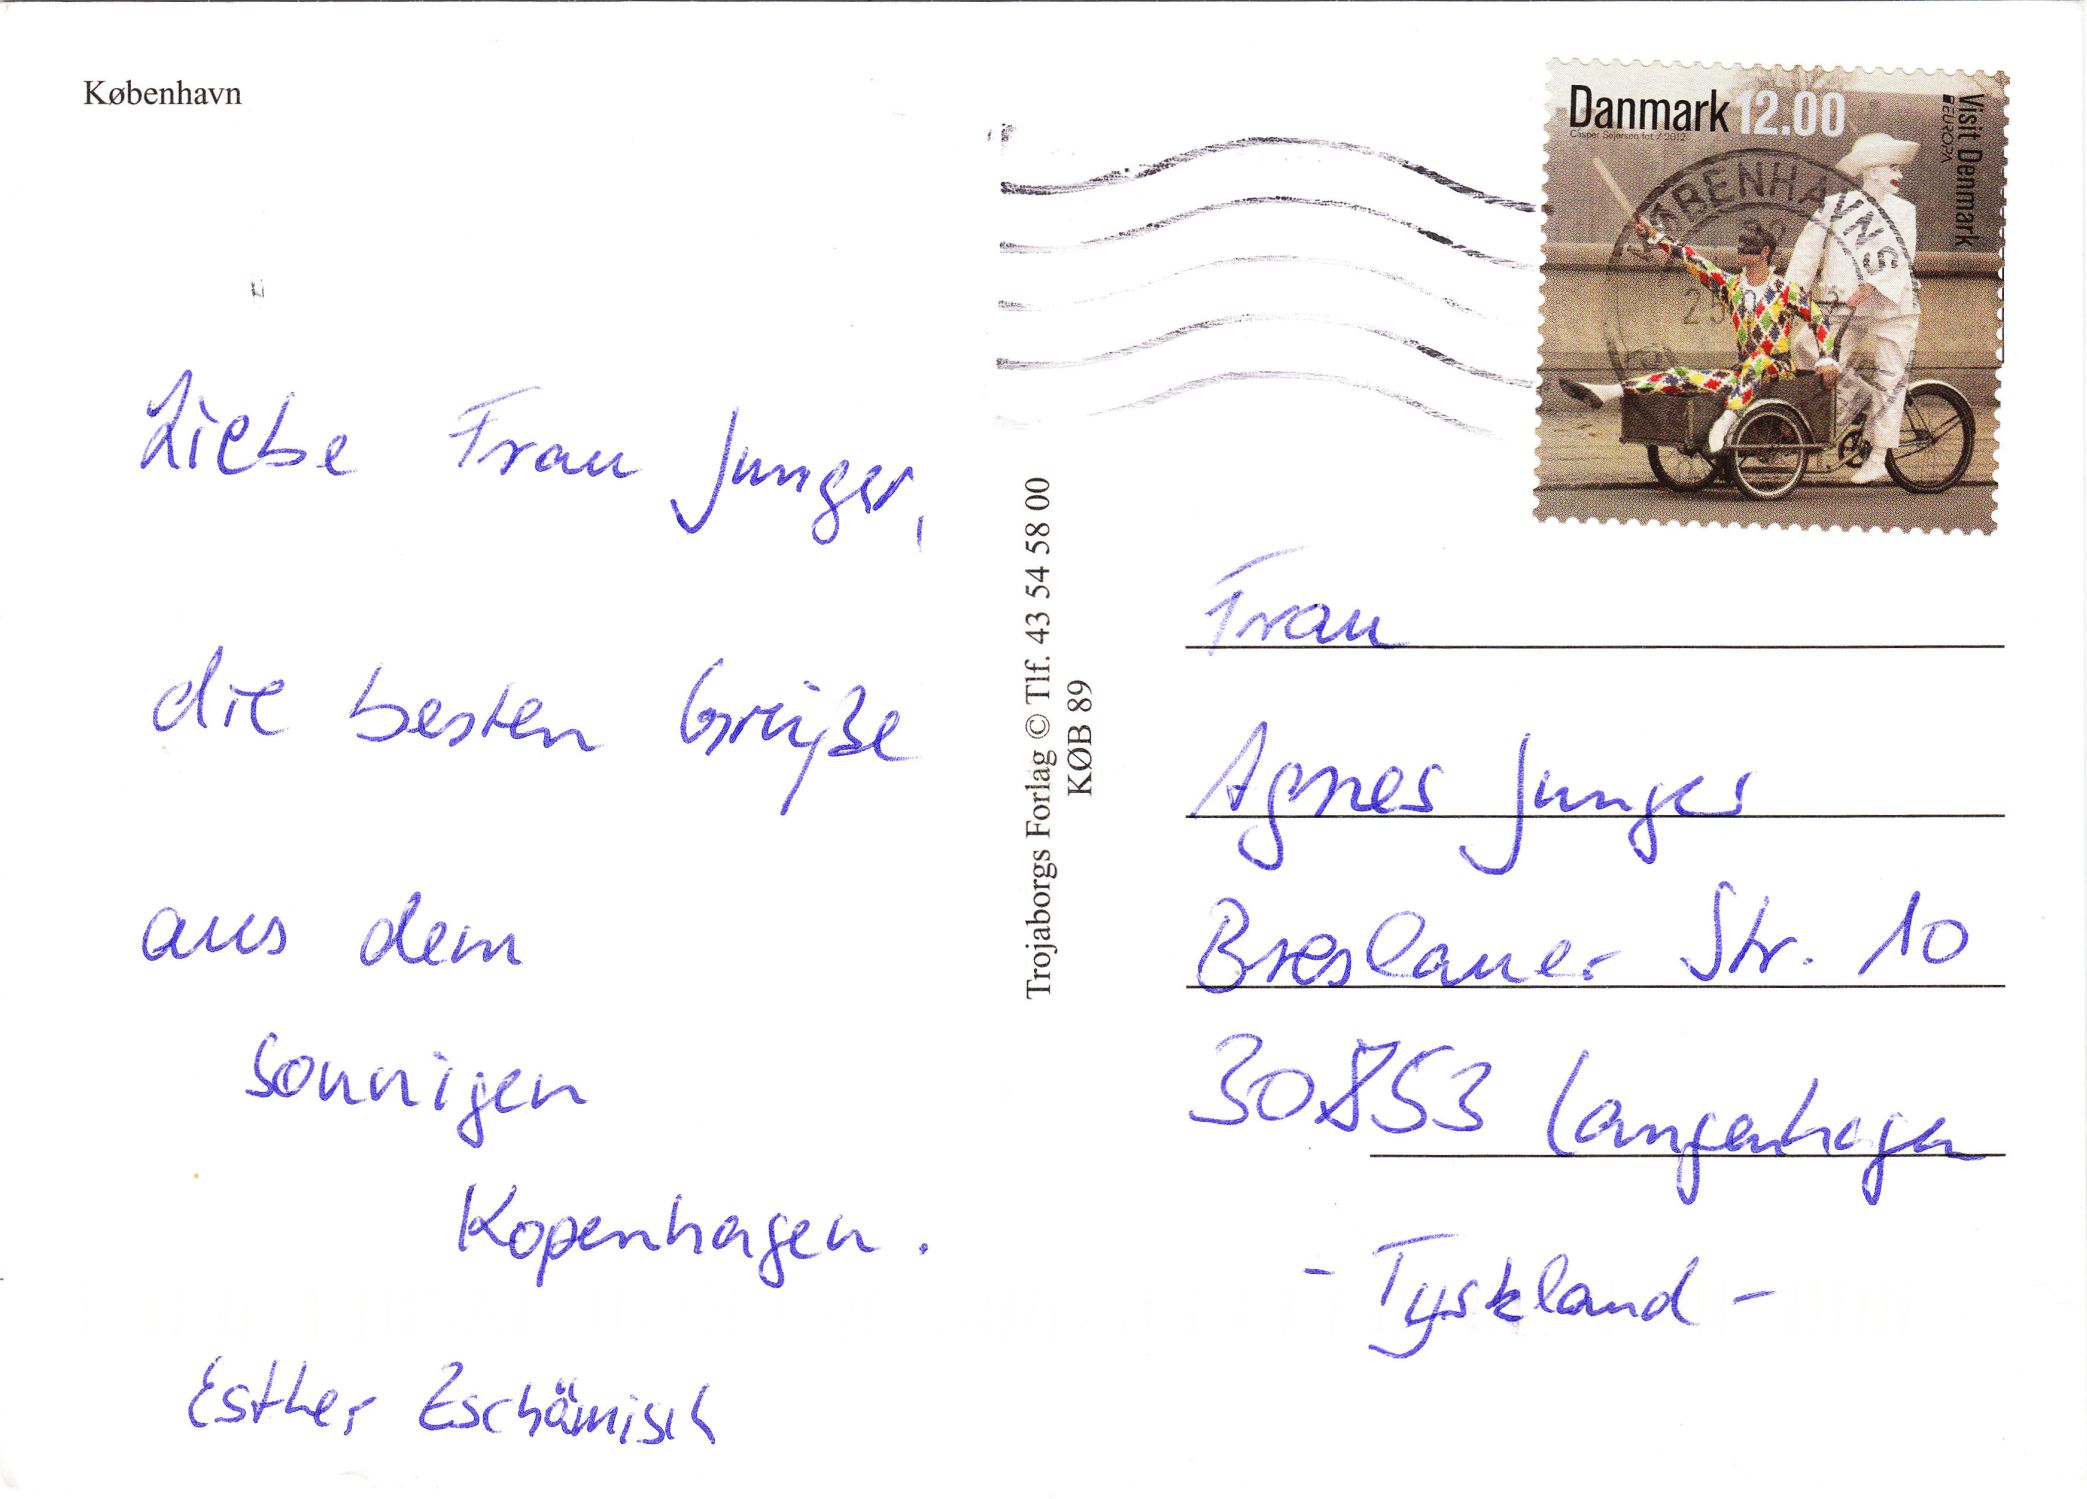 København
Danmark 12.00
Casper Sejersen fot. / 2012
Visit Denmark
EUROPA
KØBENHAVNS
Liebe Frau Junger,
die besten Grüße
aus dem
sonnigen
Kopenhagen.
Esther
Trojaborgs Forlag © Tlf. 43 54 58 00
KØB 89
Frau
Agnes Junger
Breslauer Str. 10
30853 Langenhagen
- Tyskland -